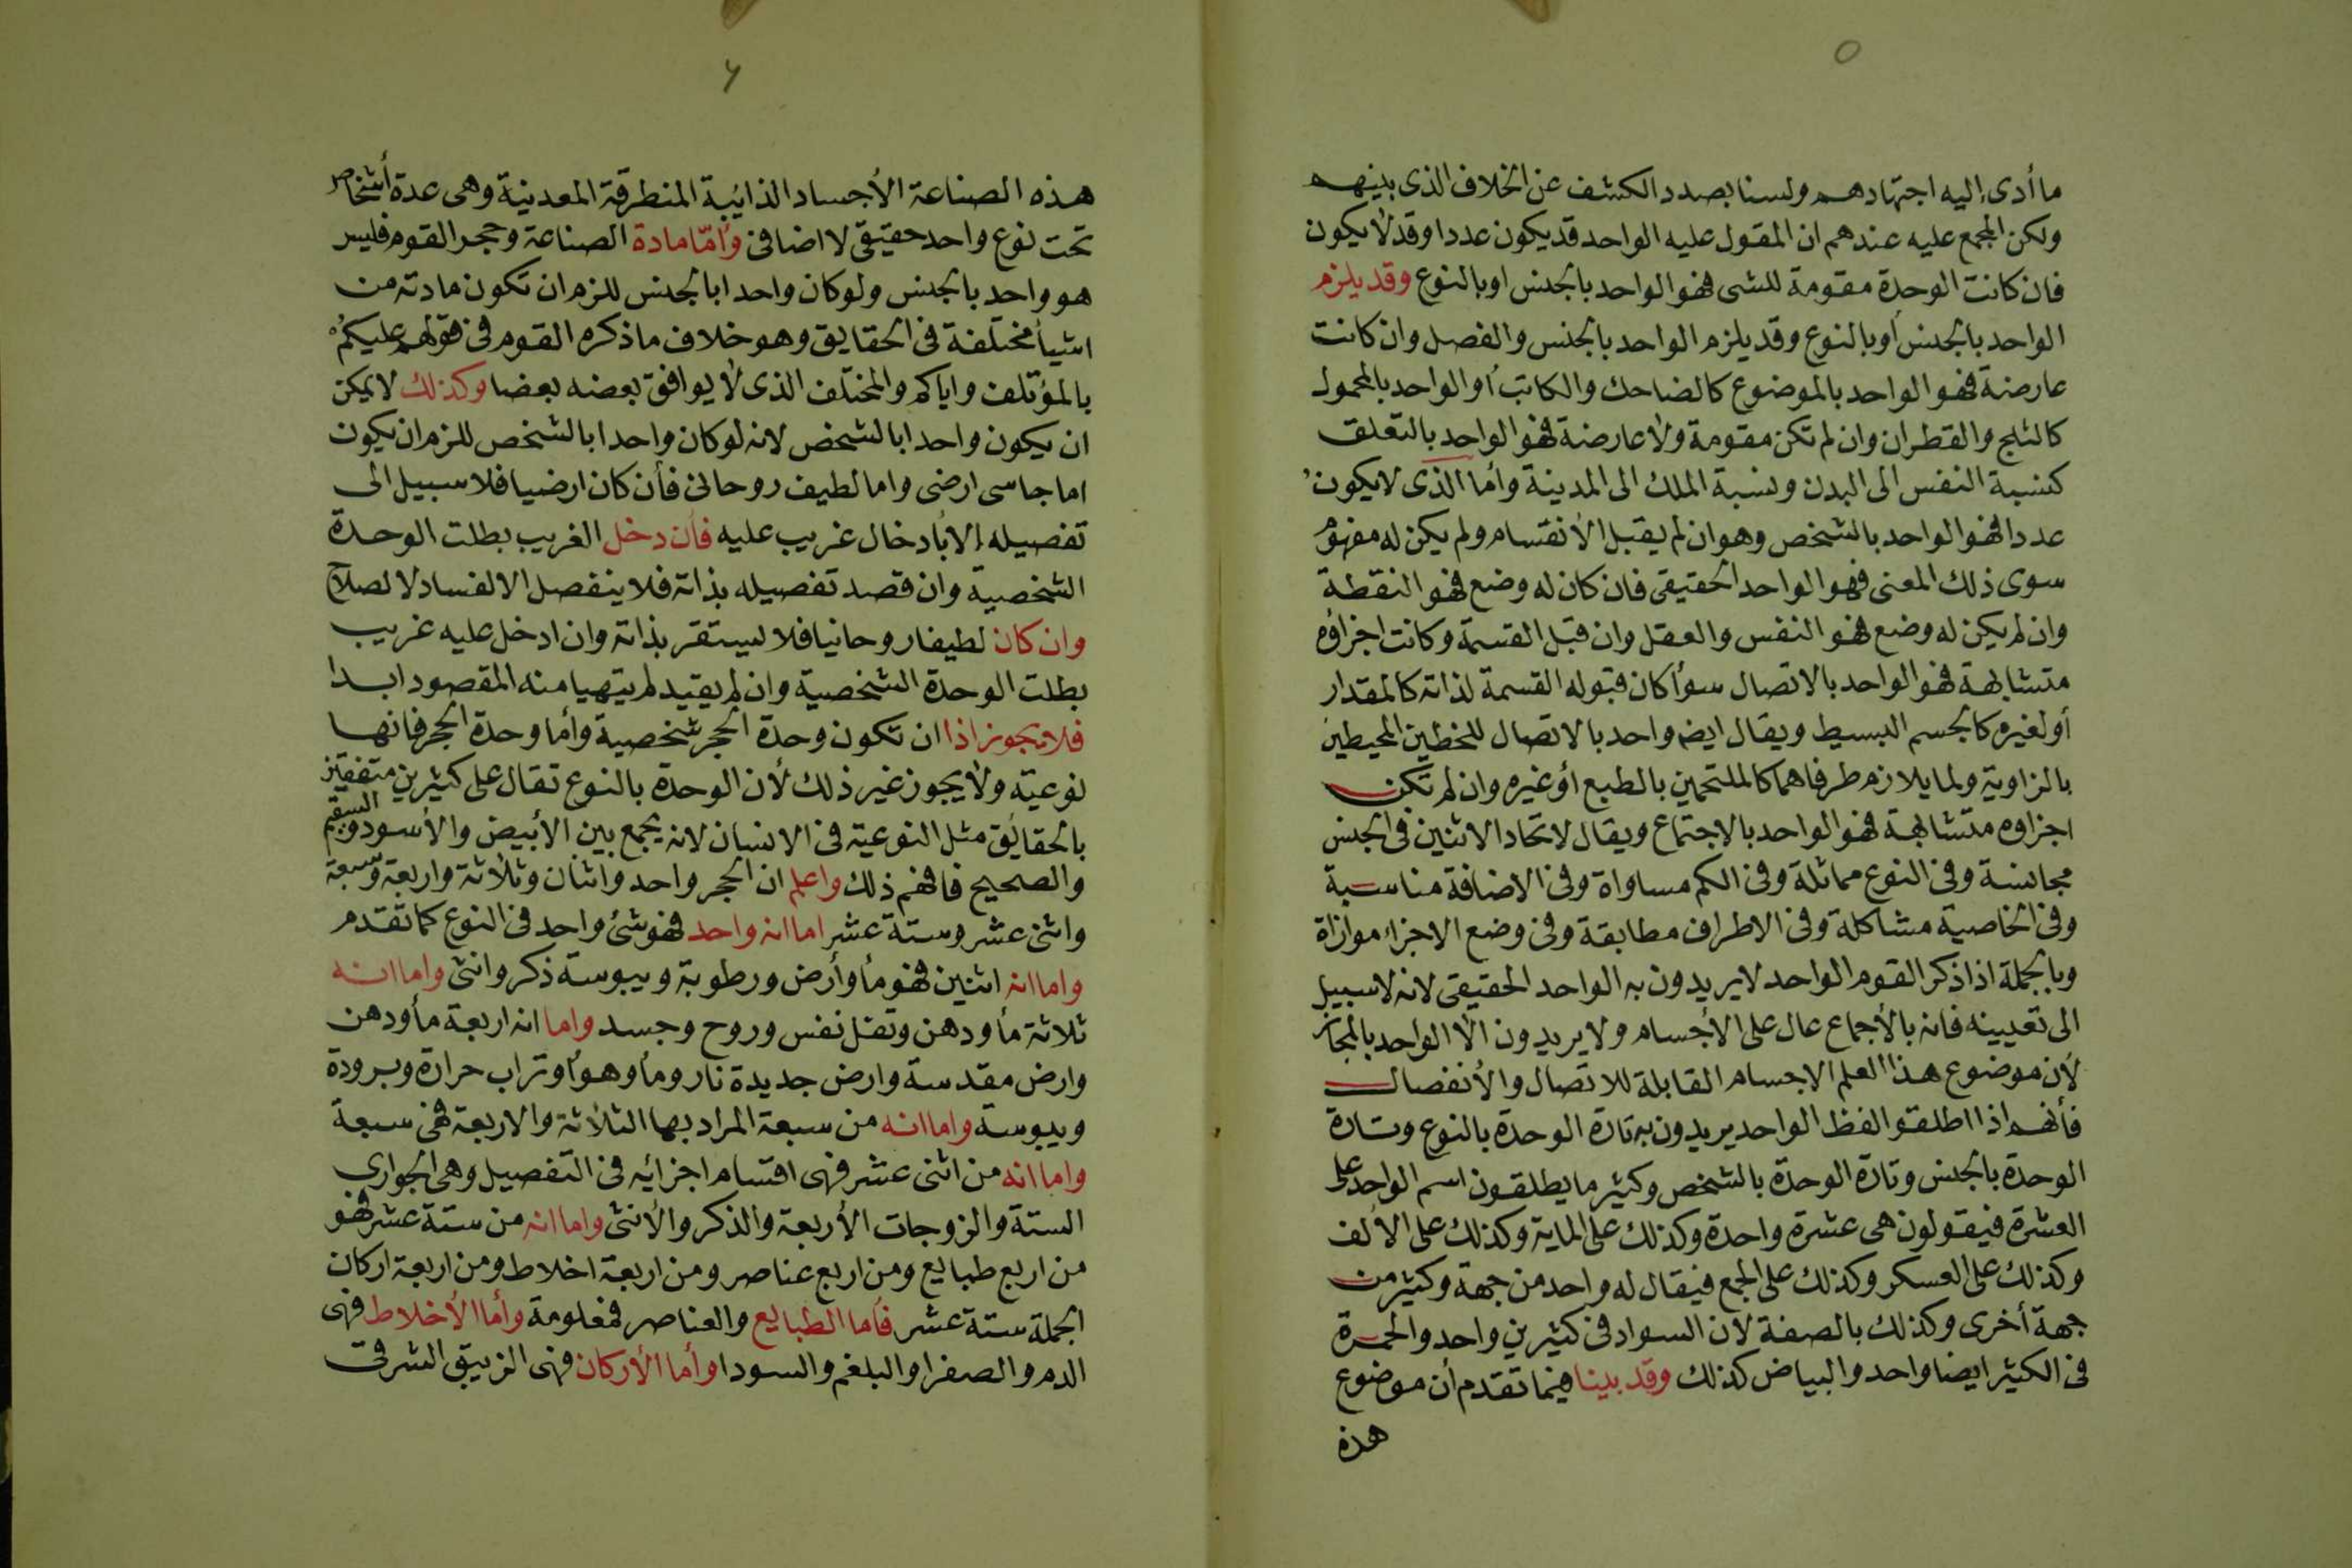 ٥
ما أدى إليه اجتهادهم ولسنا بصدد الكشف عن الخلاف الذى بينهم
ولكن المجمع عليه عندهم ان المقول عليه الواحد قد يكون عددا وقد لا يكون
فان كانت الوحدة مقومة للشى فهو الواحد بالجنس او بالنوع وقد يلزم
الواحد بالجنس أو بالنوع وقد يلزم الواحد بالجنس والفصل وان كانت
عارضة فهو الواحد بالموضوع كالضاحك والكاتب أو الواحد بالمحمول
كالثلج والقطران وان لم تكن مقومة ولا عارضة فهو الواحد بالتعلق
كنسبة النفس الى البدن ونسبة الملك الى المدينة وأما الذى لا يكون
عددا فهو الواحد بالشخص وهو ان لم يقبل الأنقسام ولم يكن له مفهوم
سوى ذلك المعنى فهو الواحد الحقيقى فان كان له وضع فهو النقطة
وان لم يكن له وضع فهو النفس والعقل وان قبل القسمة وكانت اجزاؤه
متشابهة فهو الواحد بالاتصال سوأ كان قبوله القسمة لذاته كالمقدار
أو لغيره كالجسم البسيط ويقال ايضا واحد بالاتصال للخطين المحيطين
بالزاوية ولما يلازم طرفاهما كالملتحمين بالطبع أو غيره وان لم تكن
اجزاوه متشابهة فهو الواحد بالاجتماع ويقال لاتحاد الاثنين فى الجنس
مجانسة وفى النوع مماثلة وفى الكم مساواة وفى الاضافة مناسبة
وفى الخاصية مشاكلة وفى الاطراف مطابقة وفى وضع الاجزاء موازاة
وبالجملة اذا ذكر القوم الواحد لا يريدون به الواحد الحقيقى لانه لا سبيل
الى تعيينه فانه بالأجماع عال على الأجسام ولا يريدون الا الواحد بالمجاز
لأن موضوع هذا العلم الاجسام القابلة للاتصال والأنفصال
فأنهم اذا اطلقوا لفظ الواحد يريدون به تارة الوحدة بالنوع وتارة
الوحدة بالجنس وتارة الوحدة بالشخص وكثير ما يطلقون اسم الواحد على
العشرة فيقولون هى عشرة واحدة وكذلك على الماية وكذلك على الألف
وكذلك على العسكر وكذلك على الجمع فيقال له واحد من جهة وكثير من
جهة أخرى وكذلك بالصفة لان السواد فى كثيرين واحد والحمرة
فى الكثير ايضا واحد والبياض كذلك وقد بينا فيما تقدم أن موضوع
هذه
٦
هذه الصناعة الأجساد الذائبة المنطرقة المعدنية وهى عدة أشخاص
تحت نوع واحد حقيقى لا اضافى وأمّا مادة الصناعة وحجر القوم فليس
هو واحد بالجنس ولو كان واحدا بالجنس للزم ان تكون مادته من
اشيأ مختلفة فى الحقايق وهو خلاف ما ذكره القوم فى قولهم عليكم
بالمؤتلف واياكم والمختلف الذى لا يوافق بعضه بعضا وكذلك لا يمكن
ان يكون واحدا بالشخص لانه لو كان واحدا بالشخص للزم ان يكون
اما جاسى ارضى واما لطيف روحانى فأن كان ارضيا فلا سبيل الى
تفصيله إلا بأدخال غريب عليه فأن دخل الغريب بطلت الوحدة
الشخصية وان قصد تفصيله بذاته فلا ينفصل الا لفساد لا لصلاح
وان كان لطيفا روحانيا فلا يستقر بذاته وان ادخل عليه غريب
بطلت الوحدة الشخصية وان لم يقيد لم يتهيا منه المقصود ابدا
فلا يجوز اذا ان تكون وحدة الحجر شخصية وأما وحدة الحجر فانها
نوعية ولا يجوز غير ذلك لأن الوحدة بالنوع تقال على كثيرين متفقين
بالحقائق مثل النوعية فى الانسان لانه يجمع بين الأبيض والأسود والسقيم
والصحيح فافهم ذلك واعلم ان الحجر واحد واثنان وثلاثة واربعة وسبعة
واثنى عشر وستة عشر اما انه واحد فهو شئ واحد فى النوع كما تقدم
واما انه اثنين فهو مأ وأرض ورطوبة ويبوسة ذكر وانثى واما انه
ثلاثة مأ ودهن وتفل نفس وروح وجسد واما انه اربعة مأ ودهن
وارض مقدسة وارض جديدة نار ومأ وهوأ وتراب حرارة وبرودة
ويبوسة واما انه من سبعة المراد بها الثلاثة والاربعة فهى سبعة
واما انه من اثنى عشر فهى اقسام اجزائه فى التفصيل وهى الجوارى
الستة والزوجات الأربعة والذكر والأنثى واما انه من ستة عشر فهو
من اربع طبايع ومن اربع عناصر ومن اربعة اخلاط ومن اربعة اركان
الجملة ستة عشر فأما الطبايع والعناصر فمعلومة وأما الأخلاط فهى
الدم والصفرا والبلغم والسودا وأما الأركان فهى الزيبق الشرقى